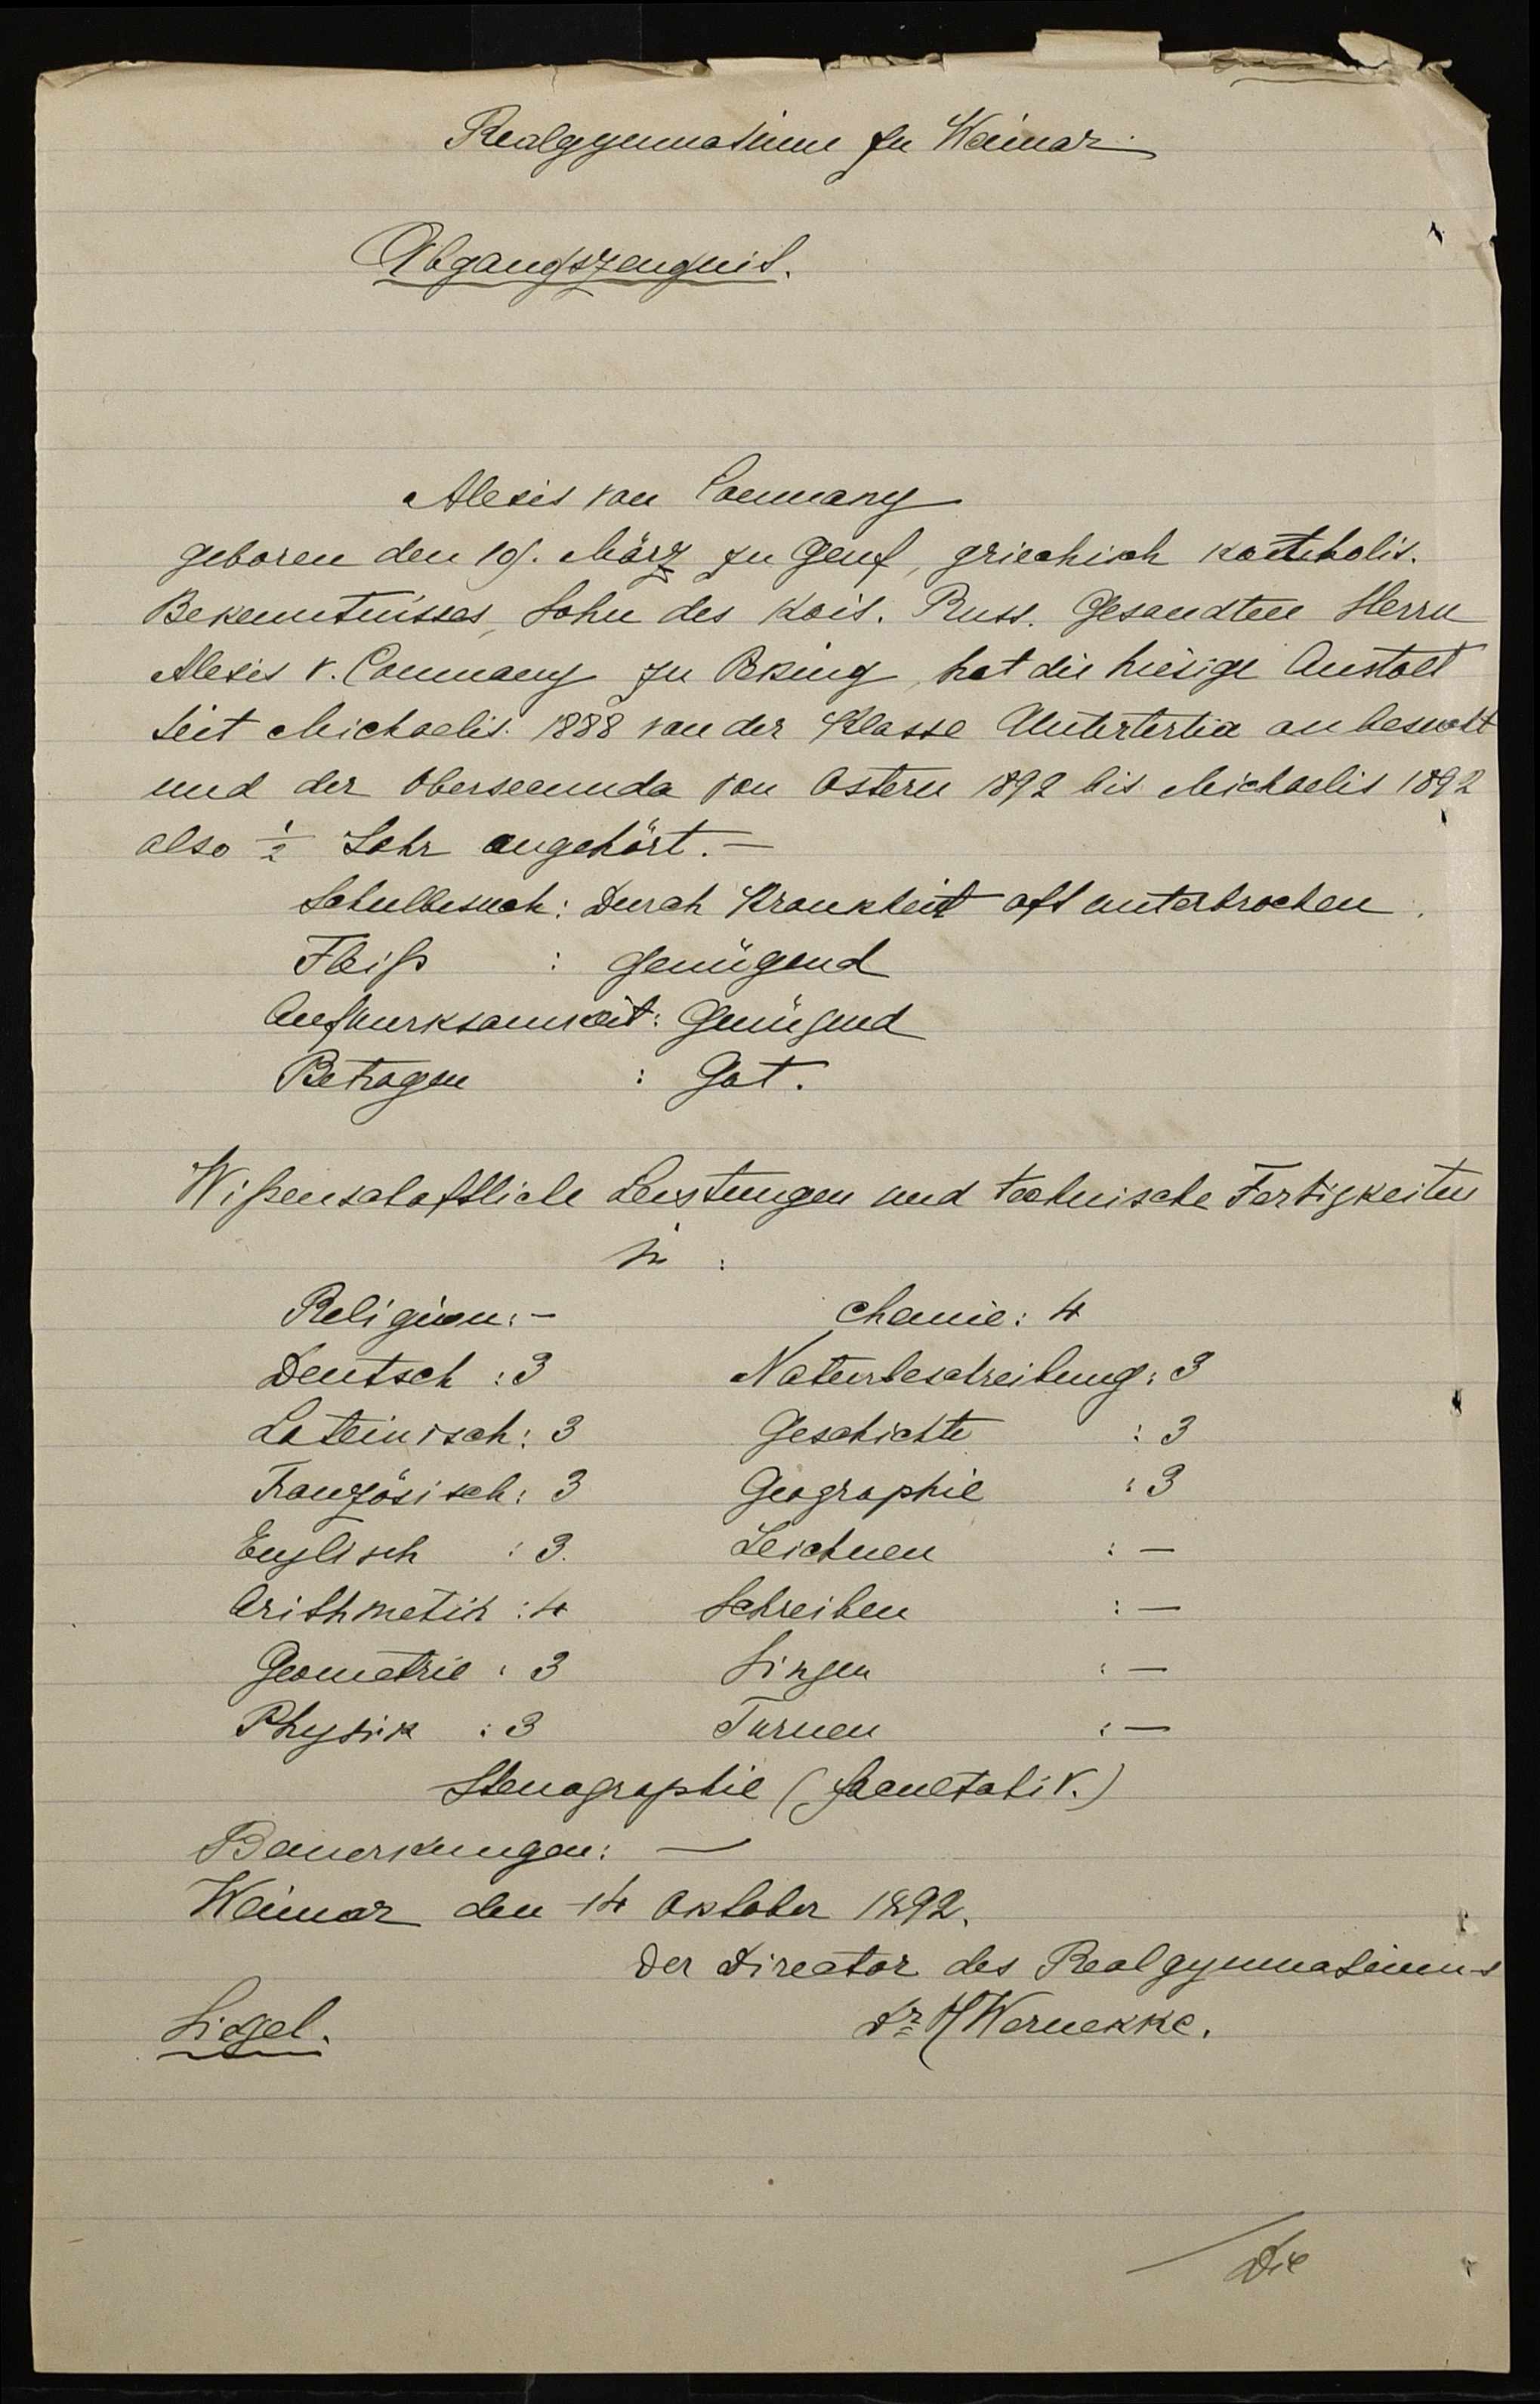 Realgymnasium zu Weimar.
Abgangszeugnis.
Alexis von Coumany
geboren den 19. März zu Genf, griechisch kathholis.
Bekenntnisses, Sohn des Kais. Russ. Gesandten Herrn
Alexis v. Coumany zu Peking, hat die hiesige Anstalt
seit Michaelis 1888 von der Klasse Untertertia an besucht
und der Obersecunda von Ostern 1892 bis Michaelis 1892
also ½ Jahr angehört. —
Schulbesuch: Durch Krankheit oft unterbrochen.
Fleiß : Genügend
Aufmerksamkeit: Genügend
Betragen : Gut.
Wißenschaftliche Leistungen und technische Fertigkeiten
in :
Religion: — Chemie: 4
Deutsch : 3 Naturbeschreibung: 3
Lateinisch: 3 Geschichte : 3
Französisch: 3 Geographie : 3
Englisch : 3. Zeichnen : —
Arithmetik : 4 Schreiben : —
Geometrie : 3 Singen : —
Physik : 3 Turnen : —
Stenographie (facultativ.)
Bemerkungen: —
Weimar den 14 Oktober 1892.
Der Director des Realgymnasiums
Sigel. Dr H Wernekke.
Die